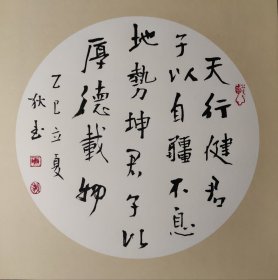 天行健君
子以自疆不息
地勢坤君子以
厚德載物
乙巳立夏
狄玉